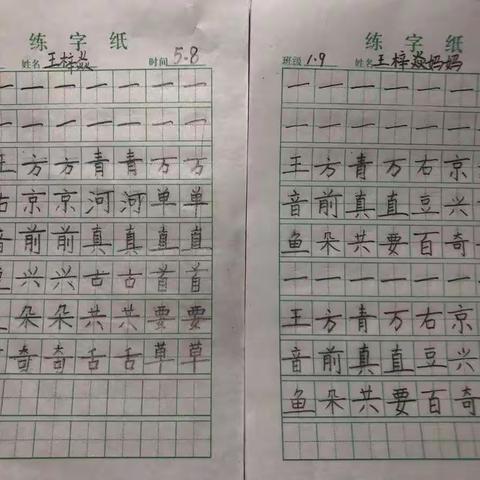 练字纸
姓名 王梓焱 时间 5.8
一 一 一 一 一 一 一
一 一 一 一 一 一 一
王 方 方 青 青 万 万
右 京 京 河 河 单 单
音 前 前 真 真 直 直
兴 兴 古 古 首 首
朵 朵 共 共 要 要
奇 奇 舌 舌 草 草
练字纸
班级 1.9 姓名 王梓焱妈妈
一 一 一 一 一 一 一
一 一 一 一 一 一 一
王 方 青 万 右 京
音 前 真 直 豆 兴
鱼 朵 共 要 百 奇
一 一 一 一 一 一 一
王 方 青 万 右 京
音 前 真 直 豆 兴
鱼 朵 共 要 百 奇